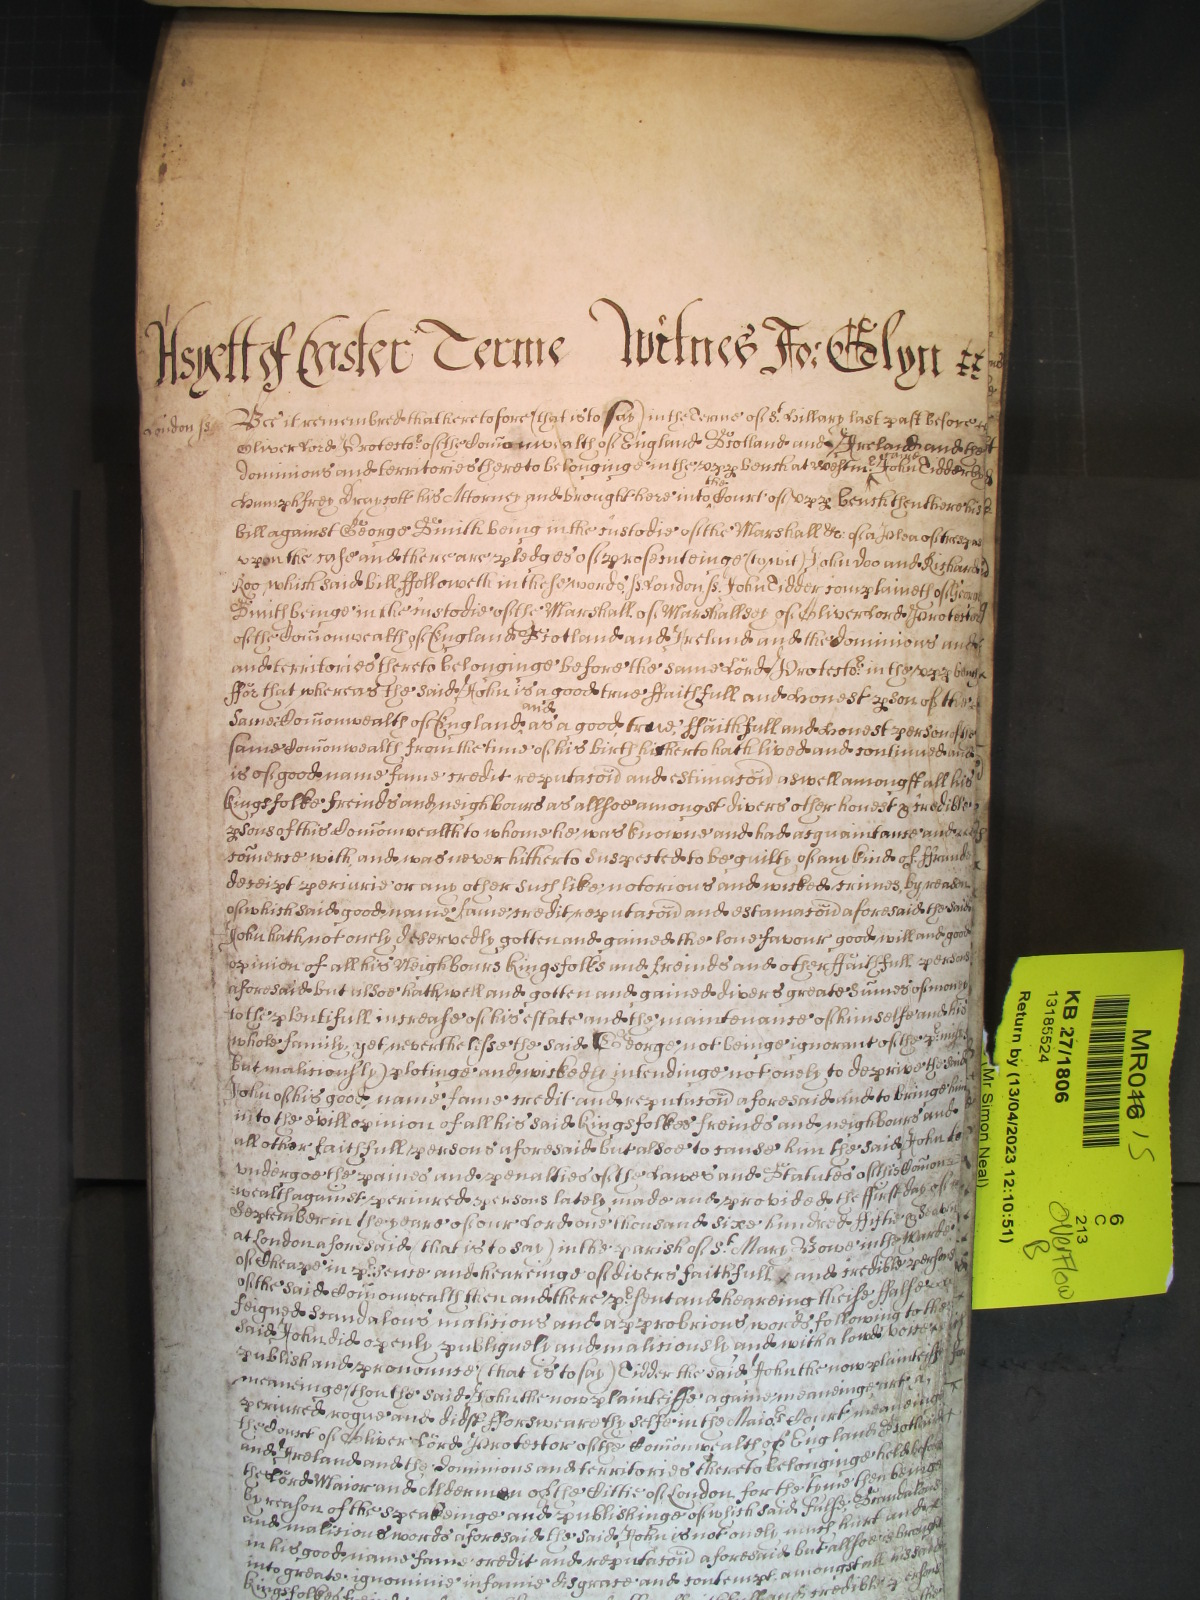 As yett of Easter Terme Witnes Jo: Glyn
London ss. Bee it remembred that heretofore (that is to say) in the Terme of St. Hillary last past before
Oliver Lord Protector of the Com̄onwealth of England Scotland and Ireland and the
dominions and territories thereto belonginge in the upp bench at Westm̄ came John Tidder by
Humphfrey Draycott his Attorney and brought here into the Court of upp bench then there his
bill against George Smith being in the custodie of the Marshall &c of a Plea of trespas
upon the case and there are pledges of prosecuteinge (to wit) John Doo and Richard
Roo, which said bill ffolloweth in these words ss. London ss. John Tidder complaineth of George
Smith beinge in the custodie of the Marshall of Marshallsey of Oliver Lord Protector
of the Com̄onwealth of England Scotland and Ireland and the dominions and
and territories thereto belonginge before the same Lord Protector in the upp bench
ffor that whereas the said John is a good true ffaithfull and honest pson of the
same Com̄onwealth of England and as a good true ffaithfull and honest person of the
same Com̄onwealth from the time of his birth hitherto hath lived and continued and
is of good name fame credit reputacōn and estimacōn aswell amongst all his
Kingsfolke freinds and neighbours as allsoe amongst divers other honest & credible
psons of this Com̄onwealth to whome he was knowne and had acquaintance and
com̄erce with and was never hitherto suspected to be guilty of any kind of ffraude
deceipt periurie or any other such like notorious and wicked crimes, by reason
of which said good name fame credit reputacōn and estamacōn aforesaid the said
John hath not onely deservedly gotten and gained the love favour good will and good
opinion of all his Neighbours Kingsfolks and freinds and other ffaithfull persons
aforesaid but alsoe hath well and gotten and gained divers greate sum̄es of money
to the plentifull increase of his estate and the maintenance of himselfe and his
whole family, yet neverthelesse the said George not beinge ignorant of the p'misses
but maliciously plotinge and wickedly intendinge not onely to deprive the said
John of his good name fame credit and reputacōn aforesaid and to bringe him
into the evill opinion of all his said Kingsfolkes freinds and neighbours and
all other faithfull persons aforesaid but alsoe to cause him the said John to
undergoe the paines and penalties of the Lawes and Statutes of this Com̄on=
wealth against periured persons lately made and provided the ffirst day of
September in the yeare of our Lord one thousand sixe hundred ffiftie & seaven
at London aforesaid (that is to say) in the parish of St. Mary Bowe in the Warde
of Cheape in p'sence and heareinge of divers faithfull and credible persons
of the said Com̄onwealth then and there p'sent and heareing theise ffalse
feigned scandalous malicious and approbrious words following to the
said John did openly publiquely and maliciously and with a lowd voice
publish and pronounce (that is to say) Tidder the said John the now plainteiffe
meaneinge thou the said John the now plainteiffe againe meaneinge art a
periured rogue and didst fforsweare thy selfe in the Maiors Court meaneinge
the Court of Oliver Lord Protector of the Com̄onwealth of England Scotland
and Ireland and the dominions and territories thereto belonginge held before
the Lord Maior and Aldermen of the Cittie of London for the tyme then beinge
by reason of the speakeinge and publishinge of which said false Scandalous
and malicious words aforesaid the said John is not onely much hurt and
in his good name fame credit and reputacōn aforesaid but allsoe is brought
into greate ignominie infamie disgrace and contempt amongst all his said
Kingsfolkes
MR016
KB 27/1806
13185524
Return by (13/04/2023 12:10:51)
Mr Simon Neal)
6
C
213
Overflow
B